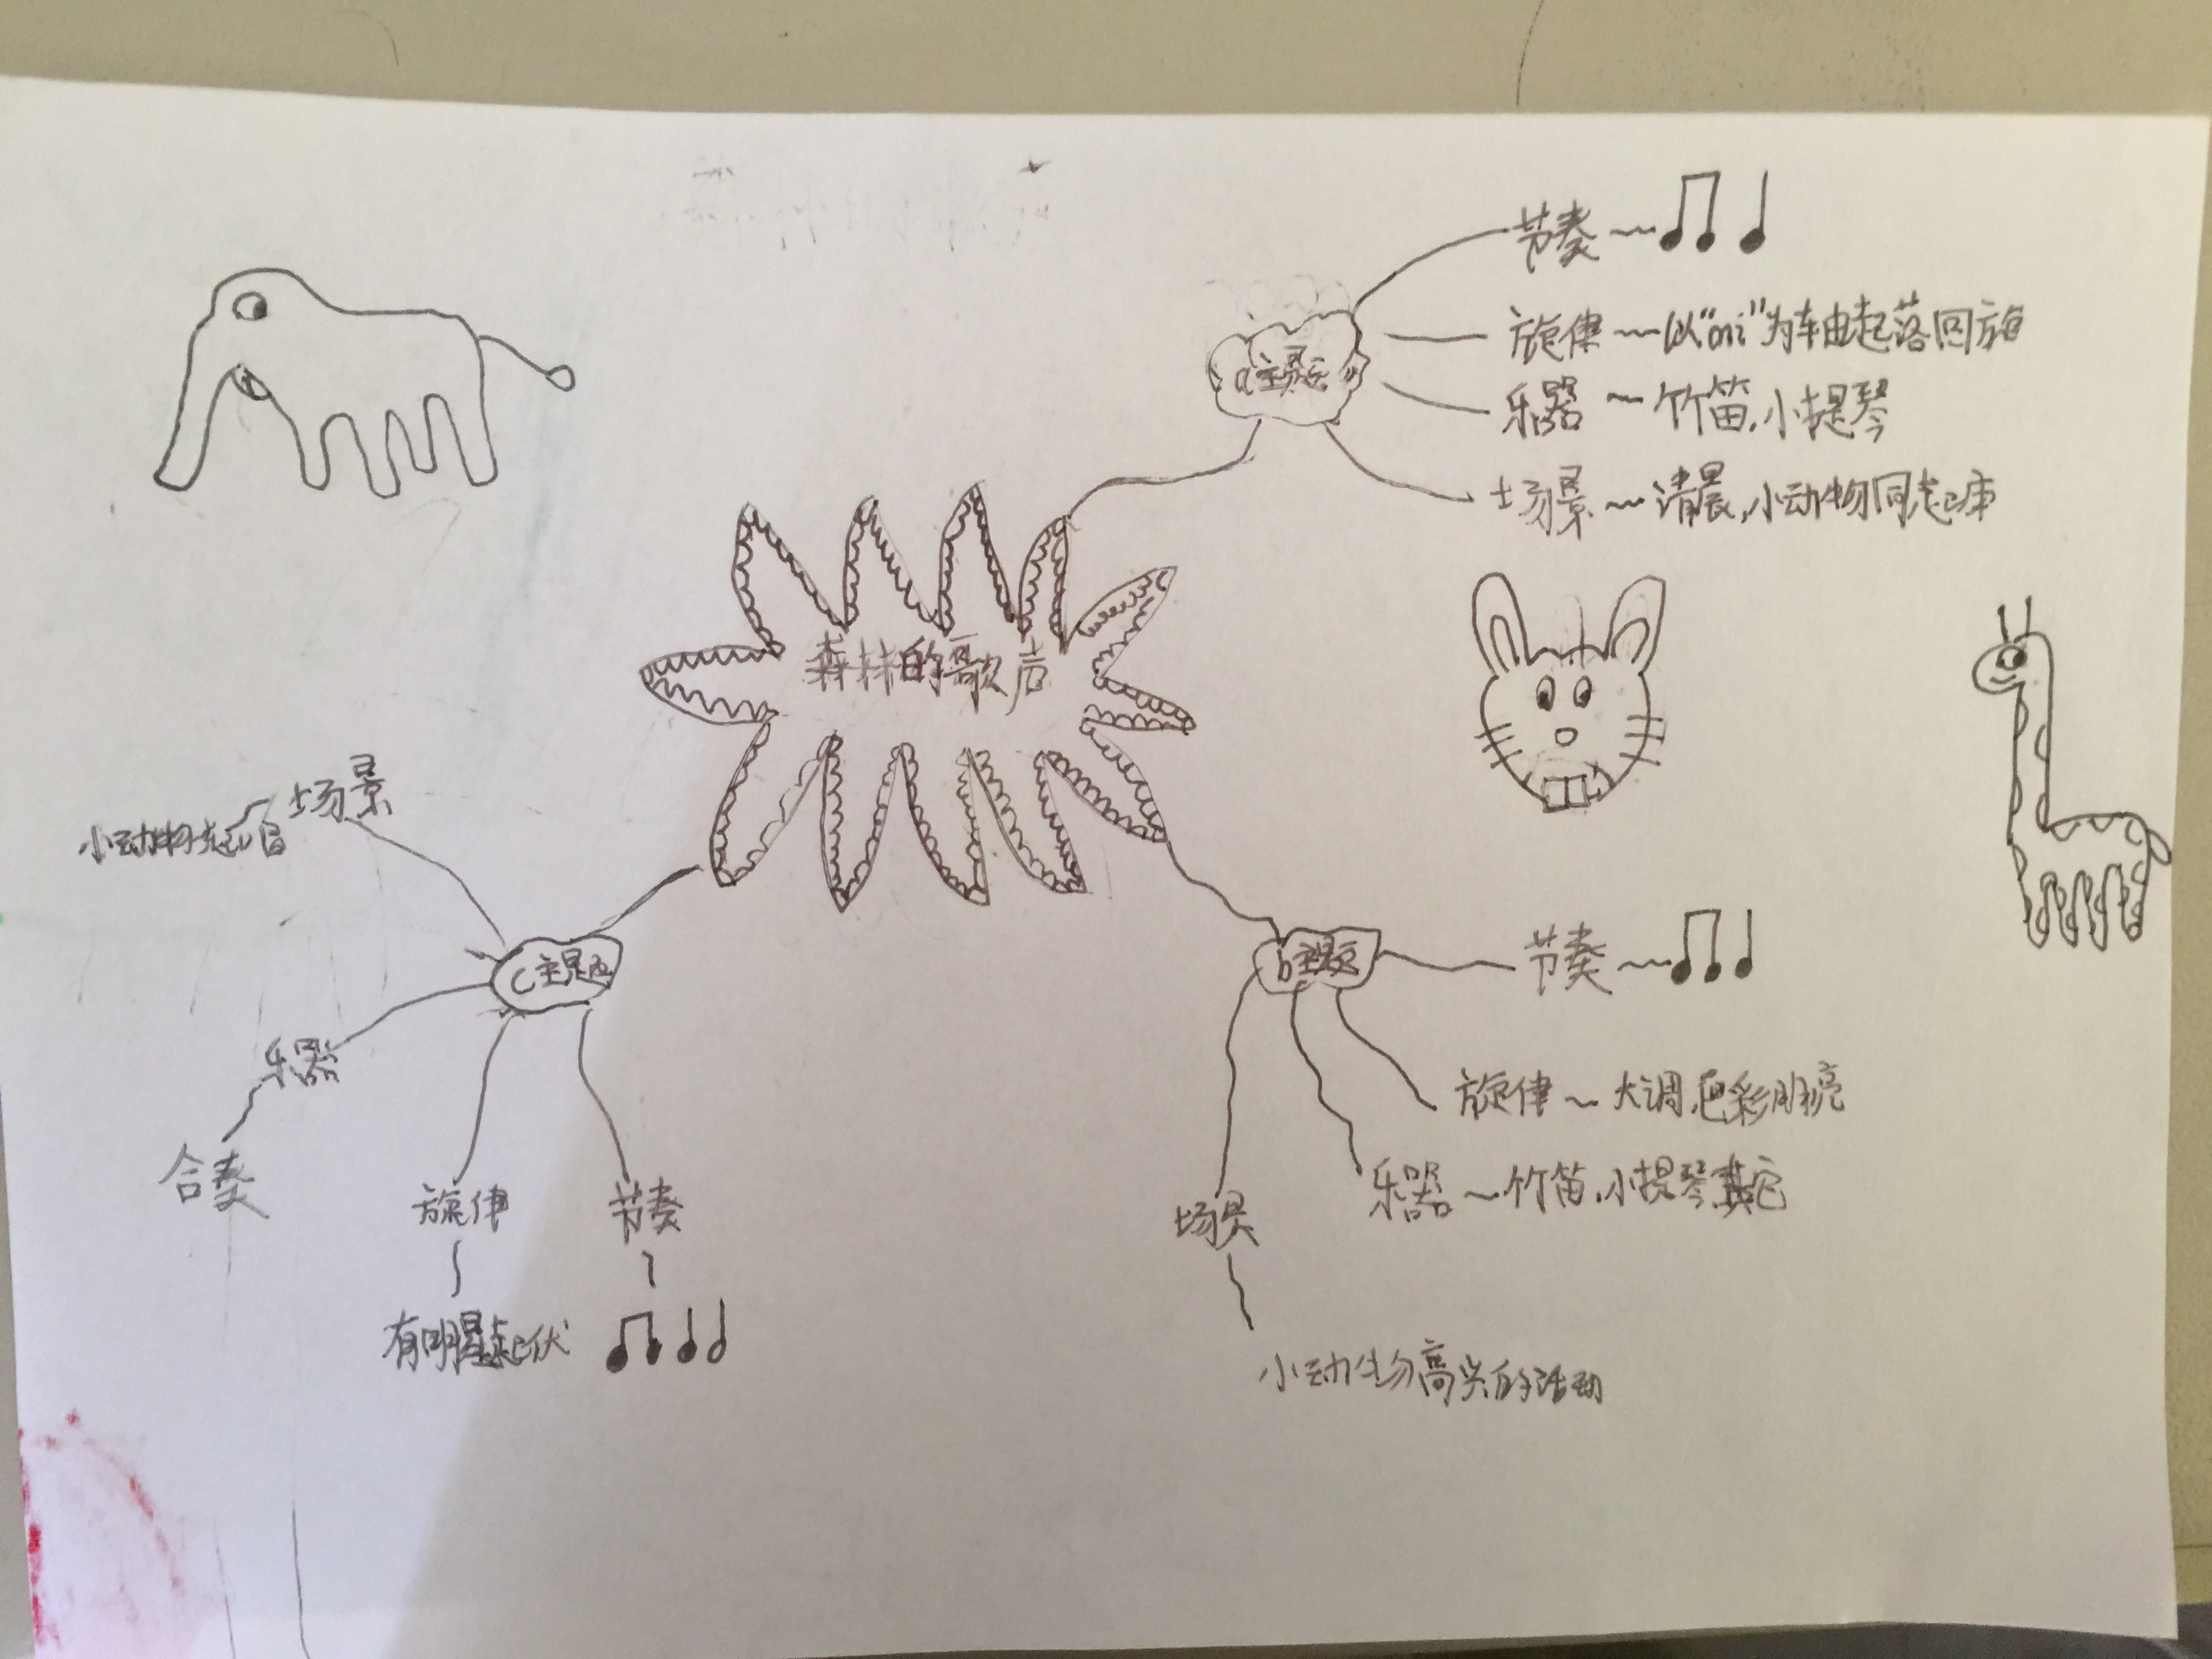 森林的歌声
a主题
节奏~
旋律~以"mi"为轴由起落回旋
乐器~竹笛,小提琴
场景~清晨,小动物同起床
b主题
节奏~
旋律~大调,色彩明亮
乐器~竹笛,小提琴,其它
场景
小动物高兴的活动
c主题
场景
小动物
乐器
合奏
旋律
有明显起伏
节奏